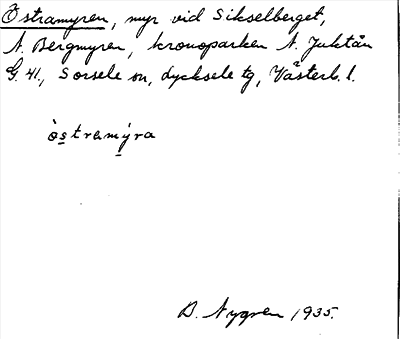 Östramyren, myr vid Sikselberget,
N. Bergmyren, kronoparken N. Juktån
G. 41., Sorsele sn, Lycksele tg, Västerb. l.
òstramýra
B. Nygren 1935.